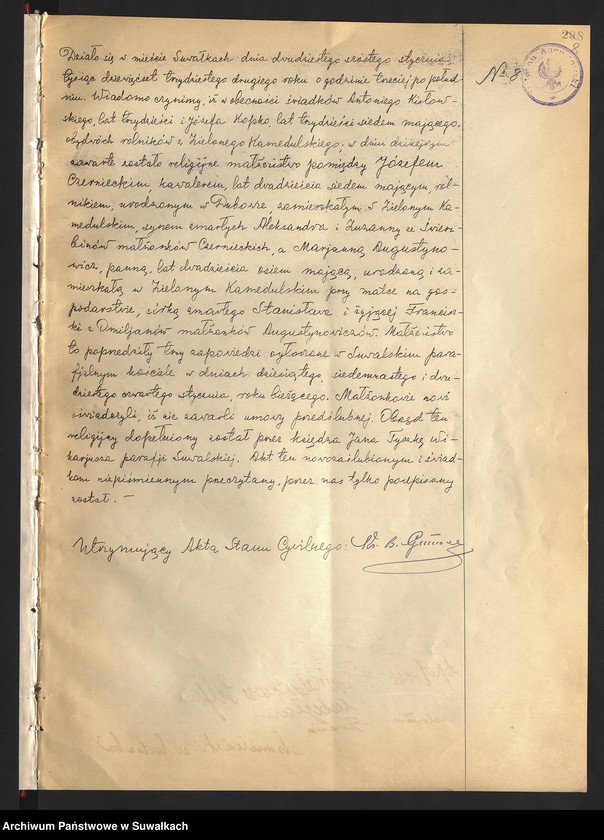 288
8
No 8.
Działo się w mieście Suwałkach dnia dwudziestego szóstego stycznia
tysiąc dziewięćset trzydziestego drugiego roku o godzinie trzeciej po połud-
niu. Wiadomo czynimy, iż w obecności świadków Antoniego
lat trzydzieści i Józefa Kopko, lat trzydzieści siedem mającego,
obydwóch rolników z Zielonego Kamedulskiego, w dniu dzisiejszym
zawarte zostało religijne małżeństwo pomiędzy Józefem
Czernieckim, kawalerem, lat dwadzieścia siedem mającym, rol-
nikiem, urodzonym w Dubowie, zamieszkałym w Zielonym Ka-
medulskim, synem zmarłych Aleksandra i Zuzanny ze
małżonków Czernieckich, a Marjanną Augustyno-
wicz, panną, lat dwadzieścia osiem mającą, urodzoną i za-
mieszkałą w Zielonym Kamedulskim przy matce na gos-
podarstwie, córką zmarłego Stanisława i żyjącej Francisz-
ki z Omiljanów małżonków Augustynowiczów. Małżeństwo
to poprzedziły trzy zapowiedzi ogłoszone w Suwalskim para-
fjalnym kościele w dniach: dziesiątego, siedemnastego i dwu-
dziestego czwartego stycznia, roku bieżącego. Małżonkowie nowi
oświadczyli, iż nie zawarli umowy przedślubnej. Obrzęd ten
religijny dopełniony został przez księdza Jana Tyszkę wi-
karjusza parafji Suwalskiej. Akt ten nowozaślubionym i świad-
kom niepiśmiennym przeczytany, przez nas tylko podpisany
został. —
Utrzymujący Akta Stanu Cywilnego: Ks. B.
Archiwum Państwowe w Suwałkach